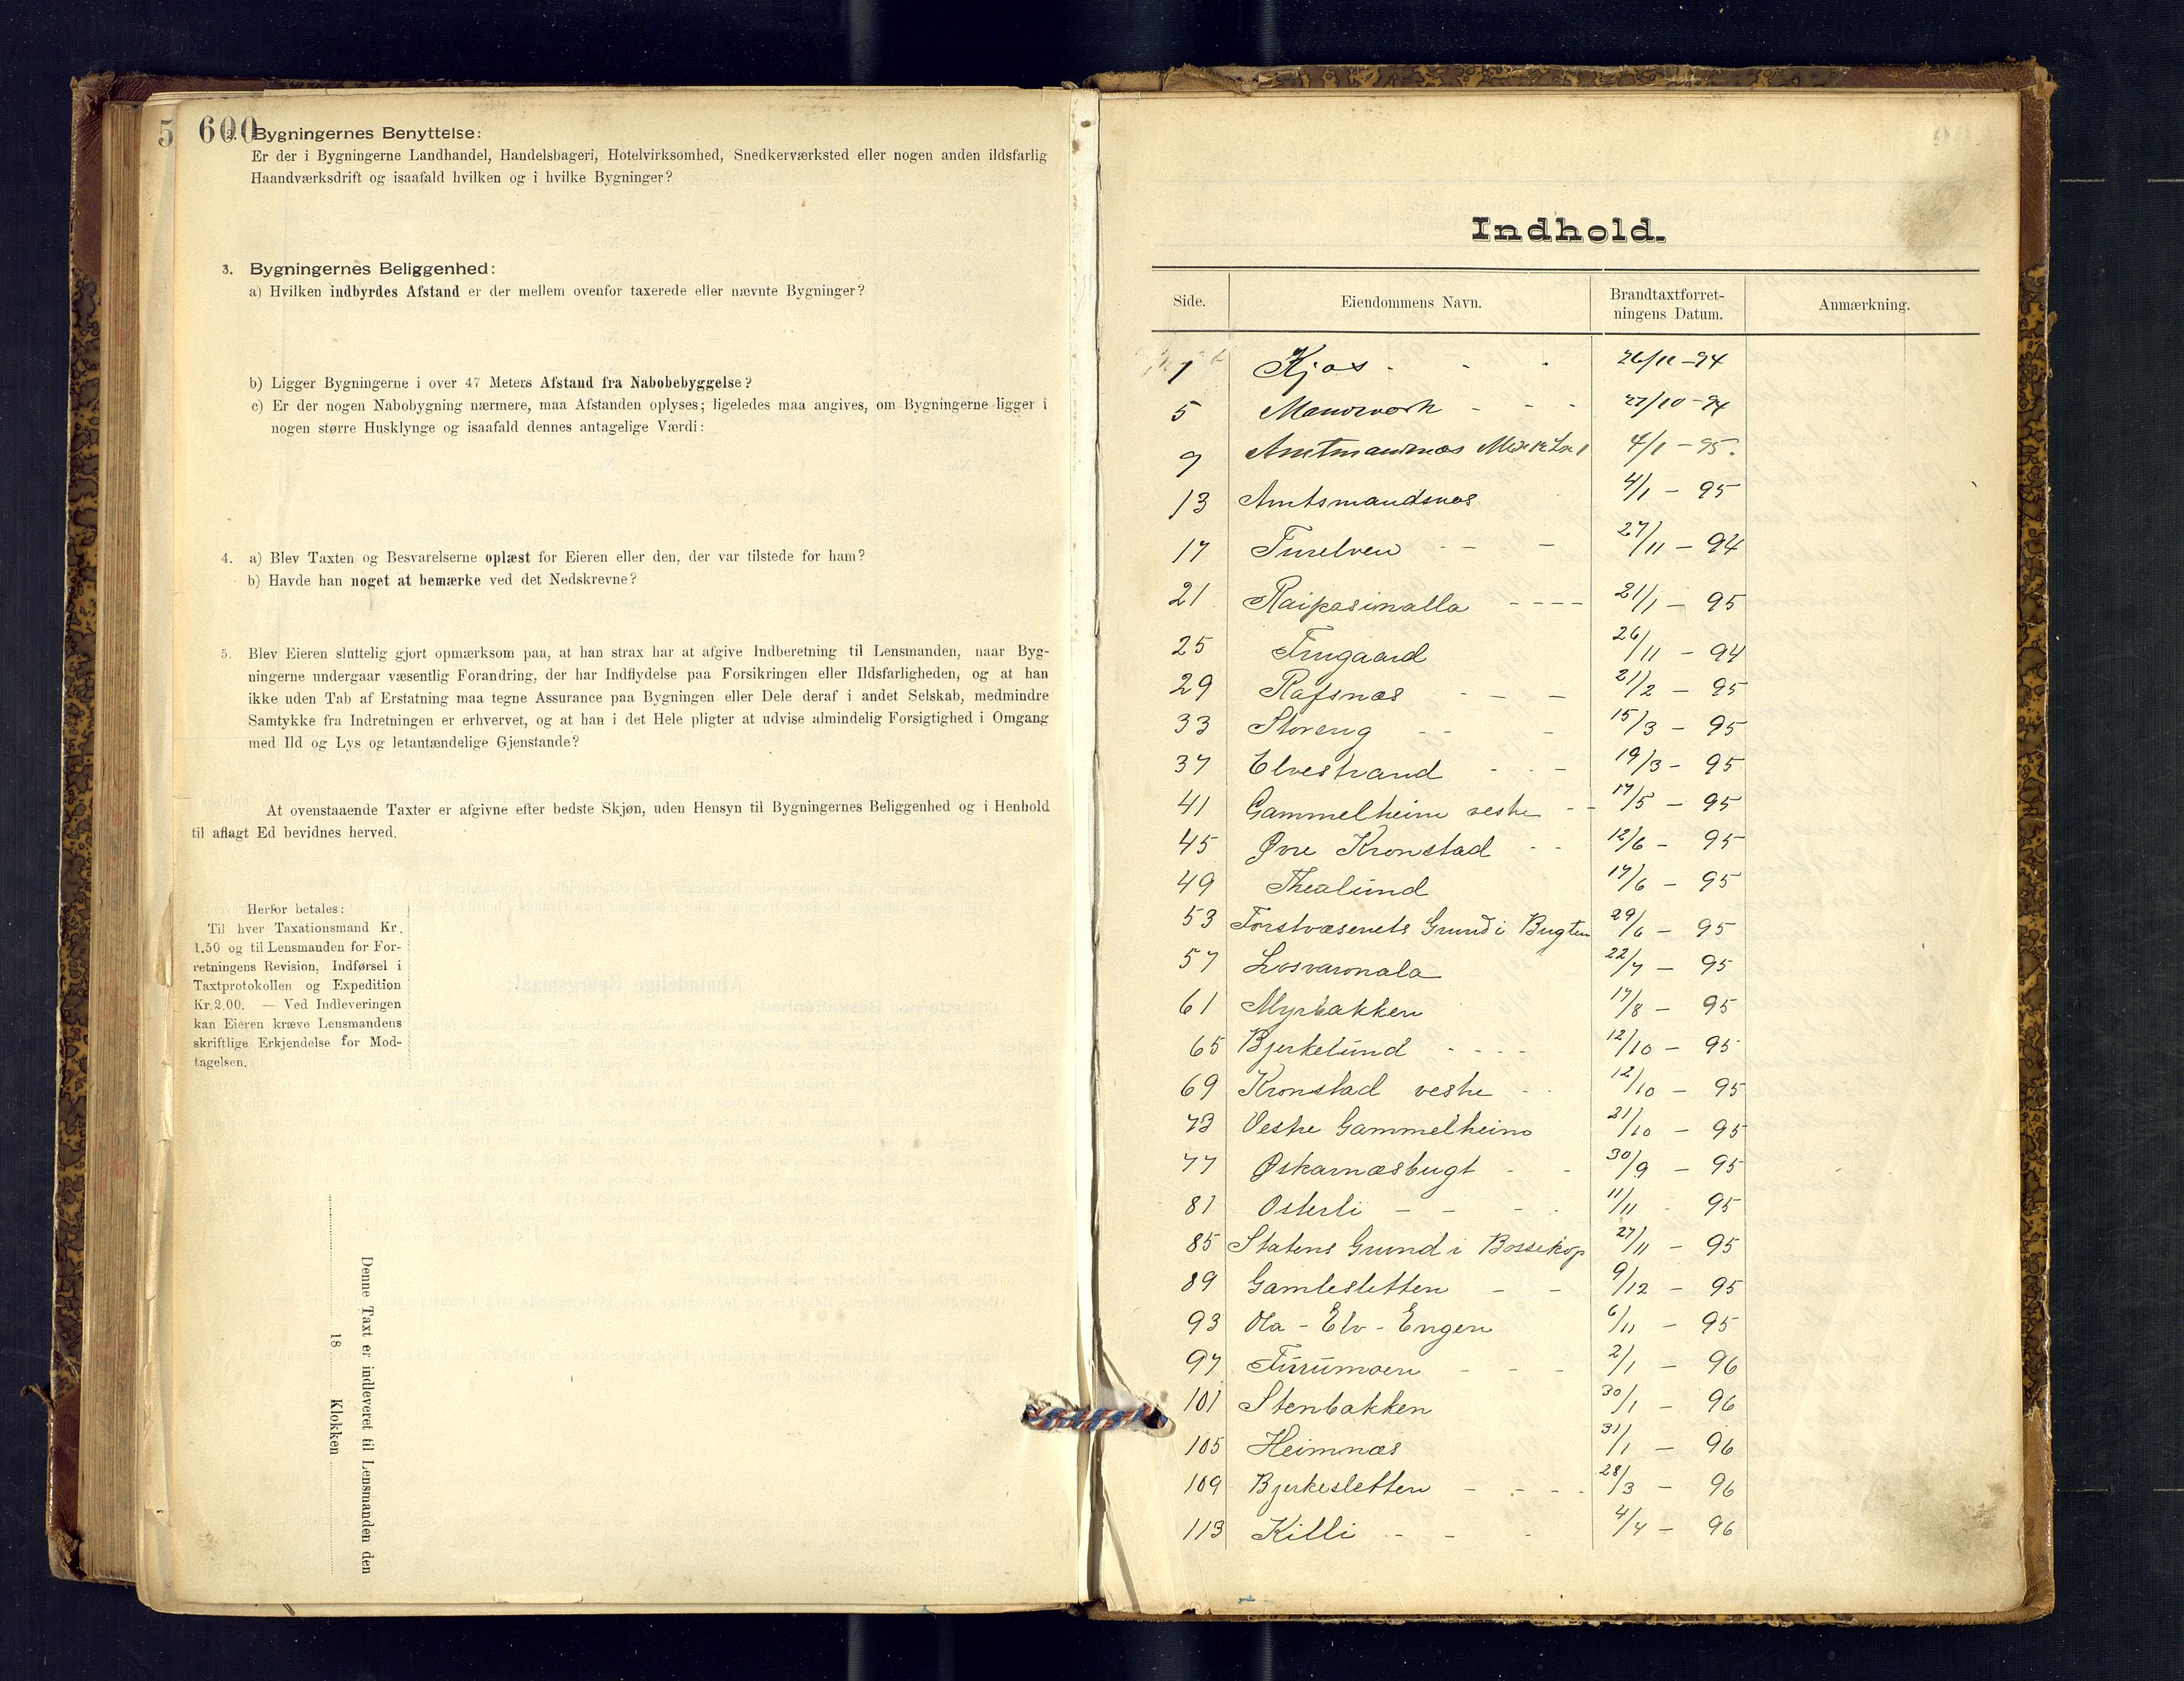 5 600
2. Bygningernes Benyttelse:
Er der i Bygningerne Landhandel, Handelsbageri, Hotelvirksomhed, Snedkerværksted eller nogen anden ildsfarlig
Haandværksdrift og isaafald hvilken og i hvilke Bygninger?
3. Bygningernes Beliggenhed:
a) Hvilken indbyrdes Afstand er der mellem ovenfor taxerede eller nævnte Bygninger?
b) Ligger Bygningerne i over 47 Meters Afstand fra Nabobebyggelse?
c) Er der nogen Nabobygning nærmere, maa Afstanden oplyses; ligeledes maa angives, om Bygningerne ligger i
nogen større Husklynge og isaafald dennes antagelige Værdi:
4. a) Blev Taxten og Besvarelserne oplæst for Eieren eller den, der var tilstede for ham?
b) Havde han noget at bemærke ved det Nedskrevne?
5. Blev Eieren sluttelig gjort opmærksom paa, at han strax har at afgive Indberetning til Lensmanden, naar Byg-
ningerne undergaar væsentlig Forandring, der har Indflydelse paa Forsikringen eller Ildsfarligheden, og at han
ikke uden Tab af Erstatning maa tegne Assurance paa Bygningen eller Dele deraf i andet Selskab, medmindre
Samtykke fra Indretningen er erhvervet, og at han i det Hele pligter at udvise almindelig Forsigtighed i Omgang
med Ild og Lys og letantændelige Gjenstande?
At ovenstaaende Taxter er afgivne efter bedste Skjøn, uden Hensyn til Bygningernes Beliggenhed og i Henhold
til aflagt Ed bevidnes herved.
Herfor betales:
Til hver Taxationsmand Kr.
1.50 og til Lensmanden for For-
retningens Revision, Indførsel i
Taxtprotokollen og Expedition
Kr. 2.00. — Ved Indleveringen
kan Eieren kræve Lensmandens
skriftlige Erkjendelse for Mod-
tagelsen.
Denne Taxt er indleveret til Lensmanden den
18 Klokken
Indhold.
Side. Eiendommens Navn. Brandtaxtforret-
ningens Datum. Anmærkning.
1 Kjos - - - 26/11 - 94
5 - - - 27/10 - 94
9 4/1 - 95.
13 Amtsmandsnes 4/1 - 95
17 Furelven - - - 27/11 - 94
21 Raipasimalla - - - - 21/1 - 95
25 26/11 - 94
29 Rafsnæs - - - 21/2 - 95
33 Storeng - - - 15/3 - 95
37 Elvestrand - - - 19/3 - 95
41 Gammelheim vestre - - 17/5 - 95
45 Øvre Kronstad - - 12/6 - 95
49 Thealund 17/6 - 95
53 Forstvæsenets Grund i Bugten 29/6 - 95
57 Losvaronala 22/7 - 95
61 Myrbakken 17/8 - 95
65 Bjerkelund - - - - 12/10 - 95
69 Kronstad vestre - - 12/10 - 95
73 Vestre Gammelheim 21/10 - 95
77 Oskarnæsbugt - - 30/9 - 95
81 Osterli - - - - 11/11 - 95
85 Statens Grund i Bossekop 27/11 - 95
89 Gamlesletten - - 9/12 - 95
93 Ola - Elv - Engen 6/11 - 95
97 Furumoen - - - 2/1 - 96
101 Stenbakken 30/1 - 96
105 Heimnæs 31/1 - 96
109 Bjerkesletten - - - - 28/3 - 96
113 Killi - - - 4/4 - 96